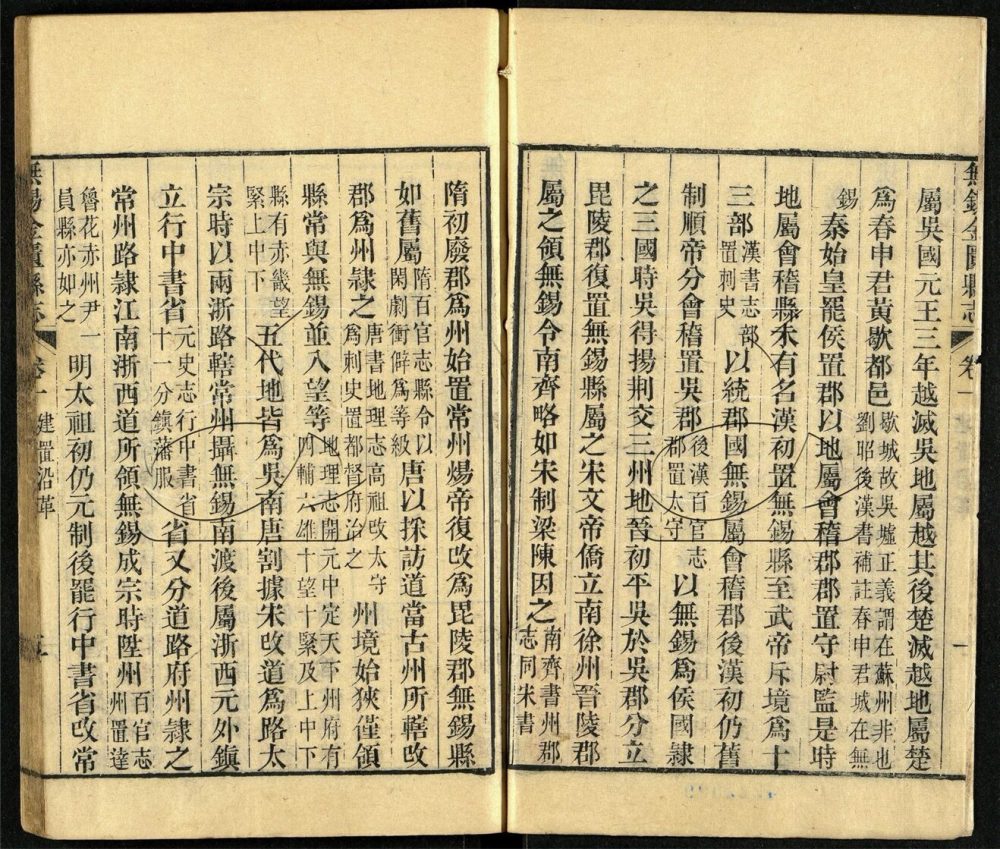 無錫金匱縣志 卷一 一
屬吳國元王三年越滅吳地屬越其後楚滅越地屬楚
爲春申君黃歇都邑 歇城故吳墟正義謂在蘇州非也 劉昭後漢書補註春申君城在無
錫 秦始皇罷侯置郡以地屬會稽郡郡置守尉監是時
地屬會稽縣未有名漢初置無錫縣至武帝斥境爲十
三部 漢書志部 置刺史 以統郡國無錫屬會稽郡後漢初仍舊
制順帝分會稽置吳郡 後漢百官志 郡置太守 以無錫爲侯國隸
之三國時吳得揚荆交三州地晉初平吳於吳郡分立
毘陵郡復置無錫縣屬之宋文帝僑立南徐州晉陵郡
屬之領無錫令南齊略如宋制梁陳因之 南齊書州郡 志同宋書
隋初廢郡爲州始置常州煬帝復改爲毘陵郡無錫縣
如舊屬 隋百官志縣令以 閑劇衝僻爲等級 唐以採訪道當古州所轄改
郡爲州隸之 唐書地理志高祖改太守 爲刺史置都督府治之 州境始狹僅領
縣常與無錫並入望等 地理志開元中定天下州府有 四輔六雄十望十緊及上中下
縣有赤畿望 緊上中下 五代地皆爲吳南唐割據宋改道爲路太
宗時以兩浙路轄常州攝無錫南渡後屬浙西元外鎮
立行中書省 元史志行中書省 十一分鎮藩服 省又分道路府州隸之
常州路隸江南浙西道所領無錫成宗時陞州 百官志 州置達
魯花赤州尹一 員縣亦如之 明太祖初仍元制後罷行中書省改常
無錫金匱縣志 卷一 建置沿革